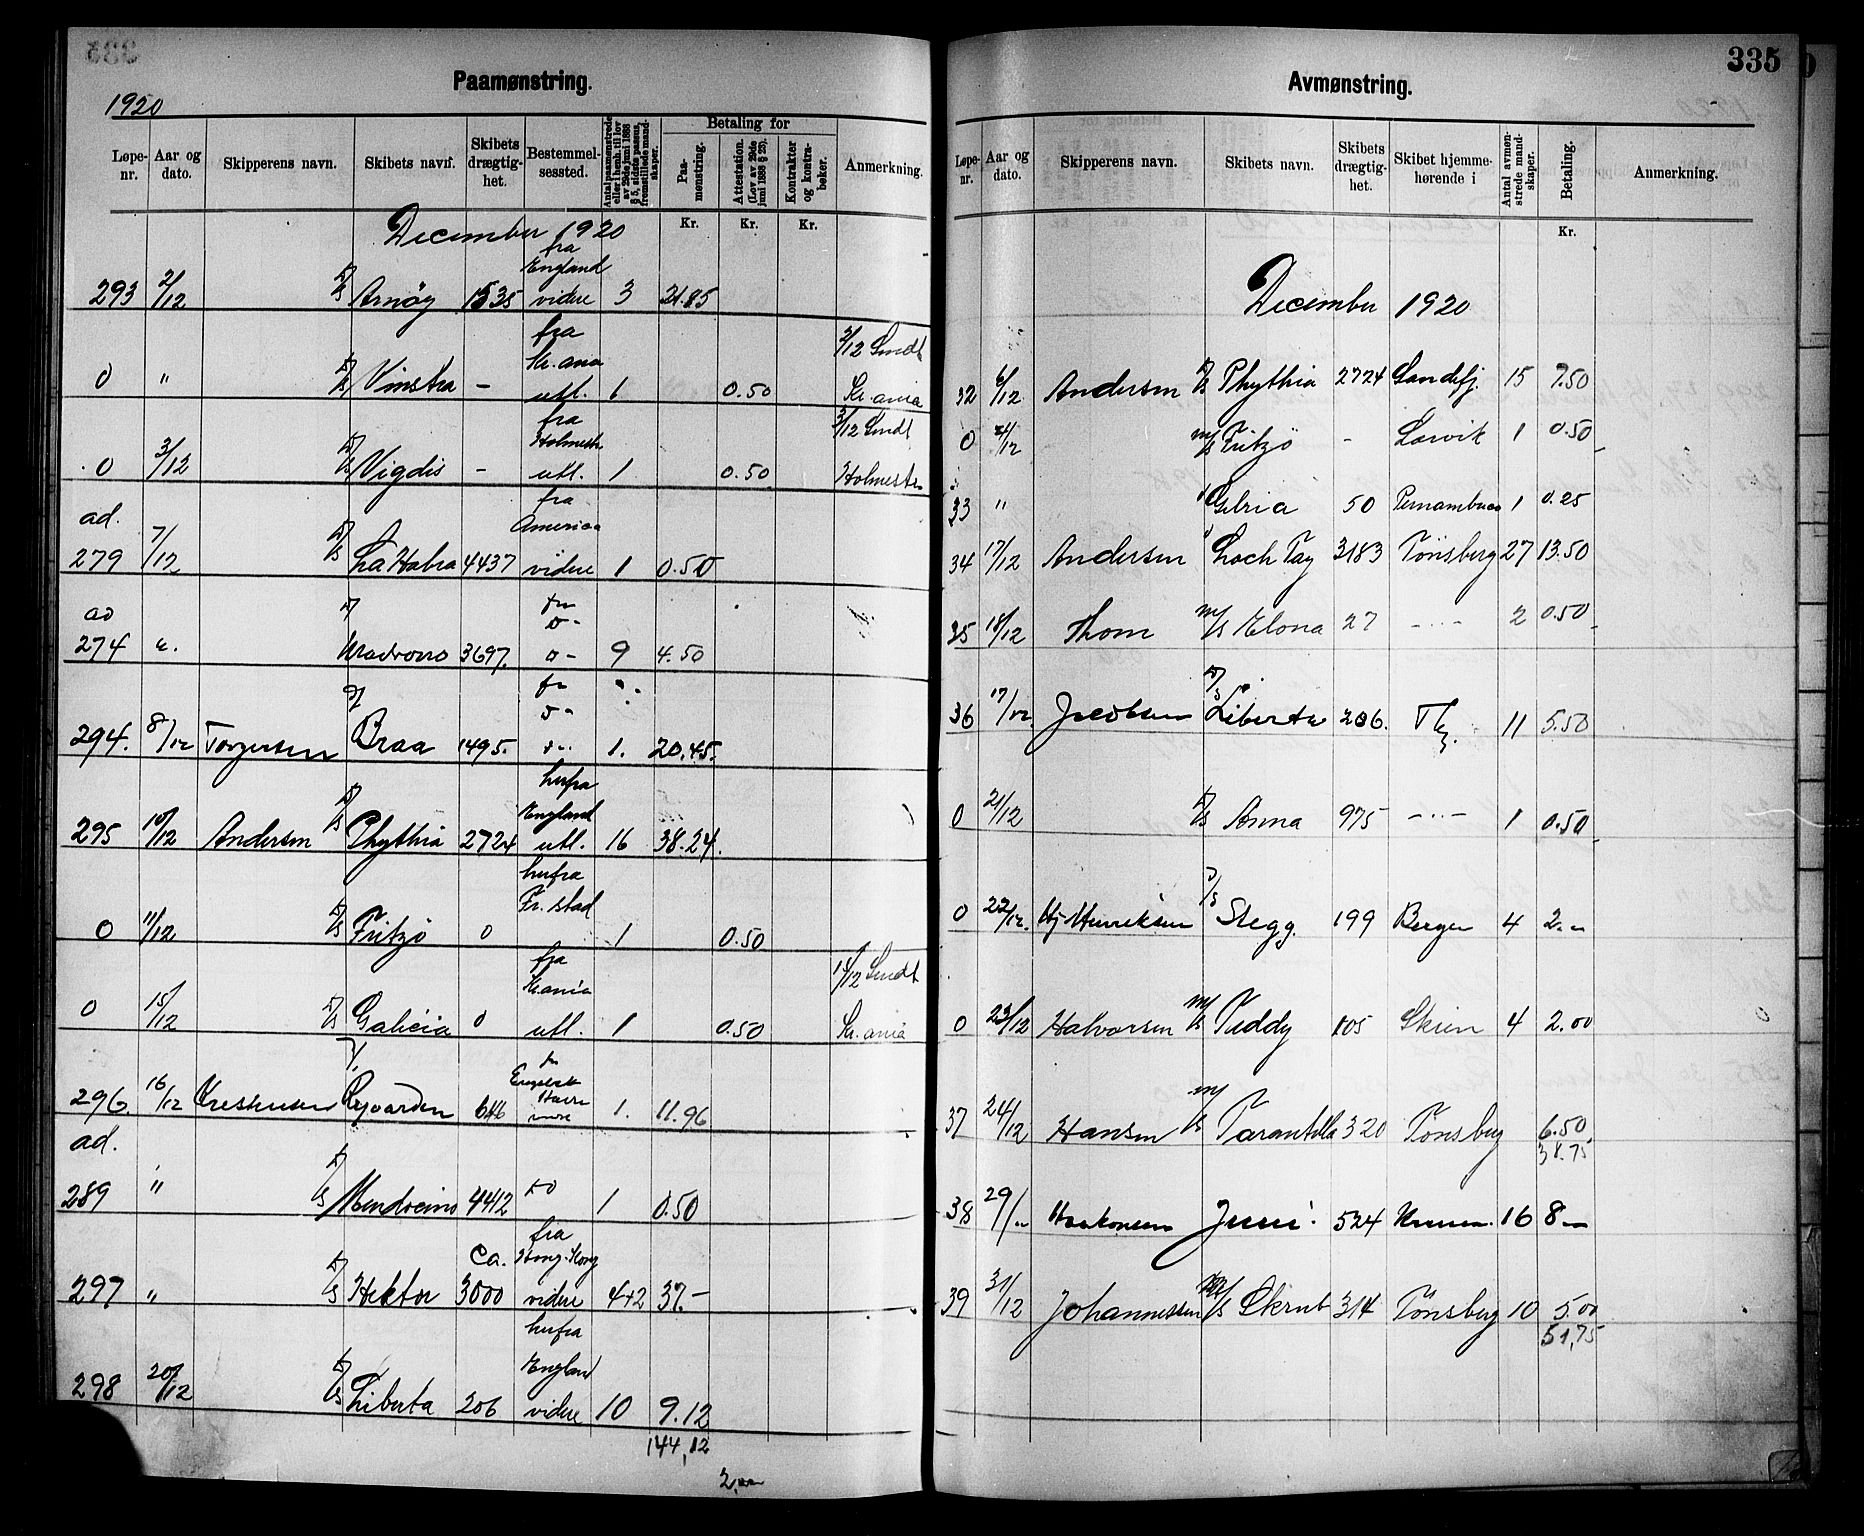 335
Paamønstring.
1920
Løpe-nr. Aar og dato. Skipperens navn. Skibets navn. Skibets drægtighet. Bestemmelsessted. Antal paamønstrede eller i henh. til lov av 29de juni 1888 § 5, sidste passus, fremstillede mandskaper. Betaling for Paamønstring. Attestation. (Lov av 29de juni 1888 § 25). Kontrakter og kontrabøker. Anmerkning.
Kr. Kr. Kr.
December 1920
fra
England
293 2/12 D/S Arnöy 1535 videre 3 21.85
fra
Kr.ania 2/12 Sendt
0 " D/S Vinstra - utl. 1 0.50 Kr.ania
fra 3/12 Sendt
Holmestr.
0 3/12 D/S Vigdis - utl. 1 0.50 Holmestr.
ad. fra
America
279 7/12 D/S La Habra 4437 videre 1 0.50
ad
274 3697 9 4.50
294. 8/12 Torgersen Braa 1495. 1. 20.45.
herfra
England
295 10/12 Andersen D/S Phythia 2724 utl. 16 38.24.
herfra
Fr.stad
0 11/12 D/S Fritzö 0 1 0.50
fra 14/12 Sendt
Kr.ania
0 15/12 D/S Galicia 0 utl. 1 0.50 Kr.ania
296. 16/12 646 1. 11.96
ad.
289 " D/S Mendocino 4412 do 1 0.50
fra
ca. Hong-Kong
297 " D/S Hektor 3000 videre 4+2 37.-
herfra
England
298 20/12 D/S Liberta 206 videre 10 9.12
144,12
335
Avmønstring.
Løpe-nr. Aar og dato. Skipperens navn. Skibets navn. Skibets drægtighet. Skibet hjemmehørende i Antal avmønstrede mandskaper. Betaling. Anmerkning.
Kr.
December 1920
32 6/12 Andersen D/S Phythia 2724 Sandefj. 15 7.50
0 "/12 M/S Fritzö - Larvik 1 0.50
33 " 50 Pernambuco 1 0.25
34 17/12 Andersen Loch Tay 3183 Tönsberg 27 13.50
35 18/12 Thom M/S Elona 27 -"- 2 0.50
36 17/12 Jacobsen D/S Liberta 206. Tbg. 11 5.50
0 21/12 D/S Anna 975 -"- 1 0.50
0 22/12. Hj. Henriksen D/S Stegg. 199 Bergen 4 2.-
0 23/12 Halvorsen M/S Teddy 105 Skien 4 2.00
37 24/12 Hansen M/S Tarantella 320 Tonsberg 6.50
38.75
38 29/" Haakonsen Juni. 524 16 8-
39 31/12 Johannessen M/S Skrub 314 Tönsberg 10 5.00
51,75